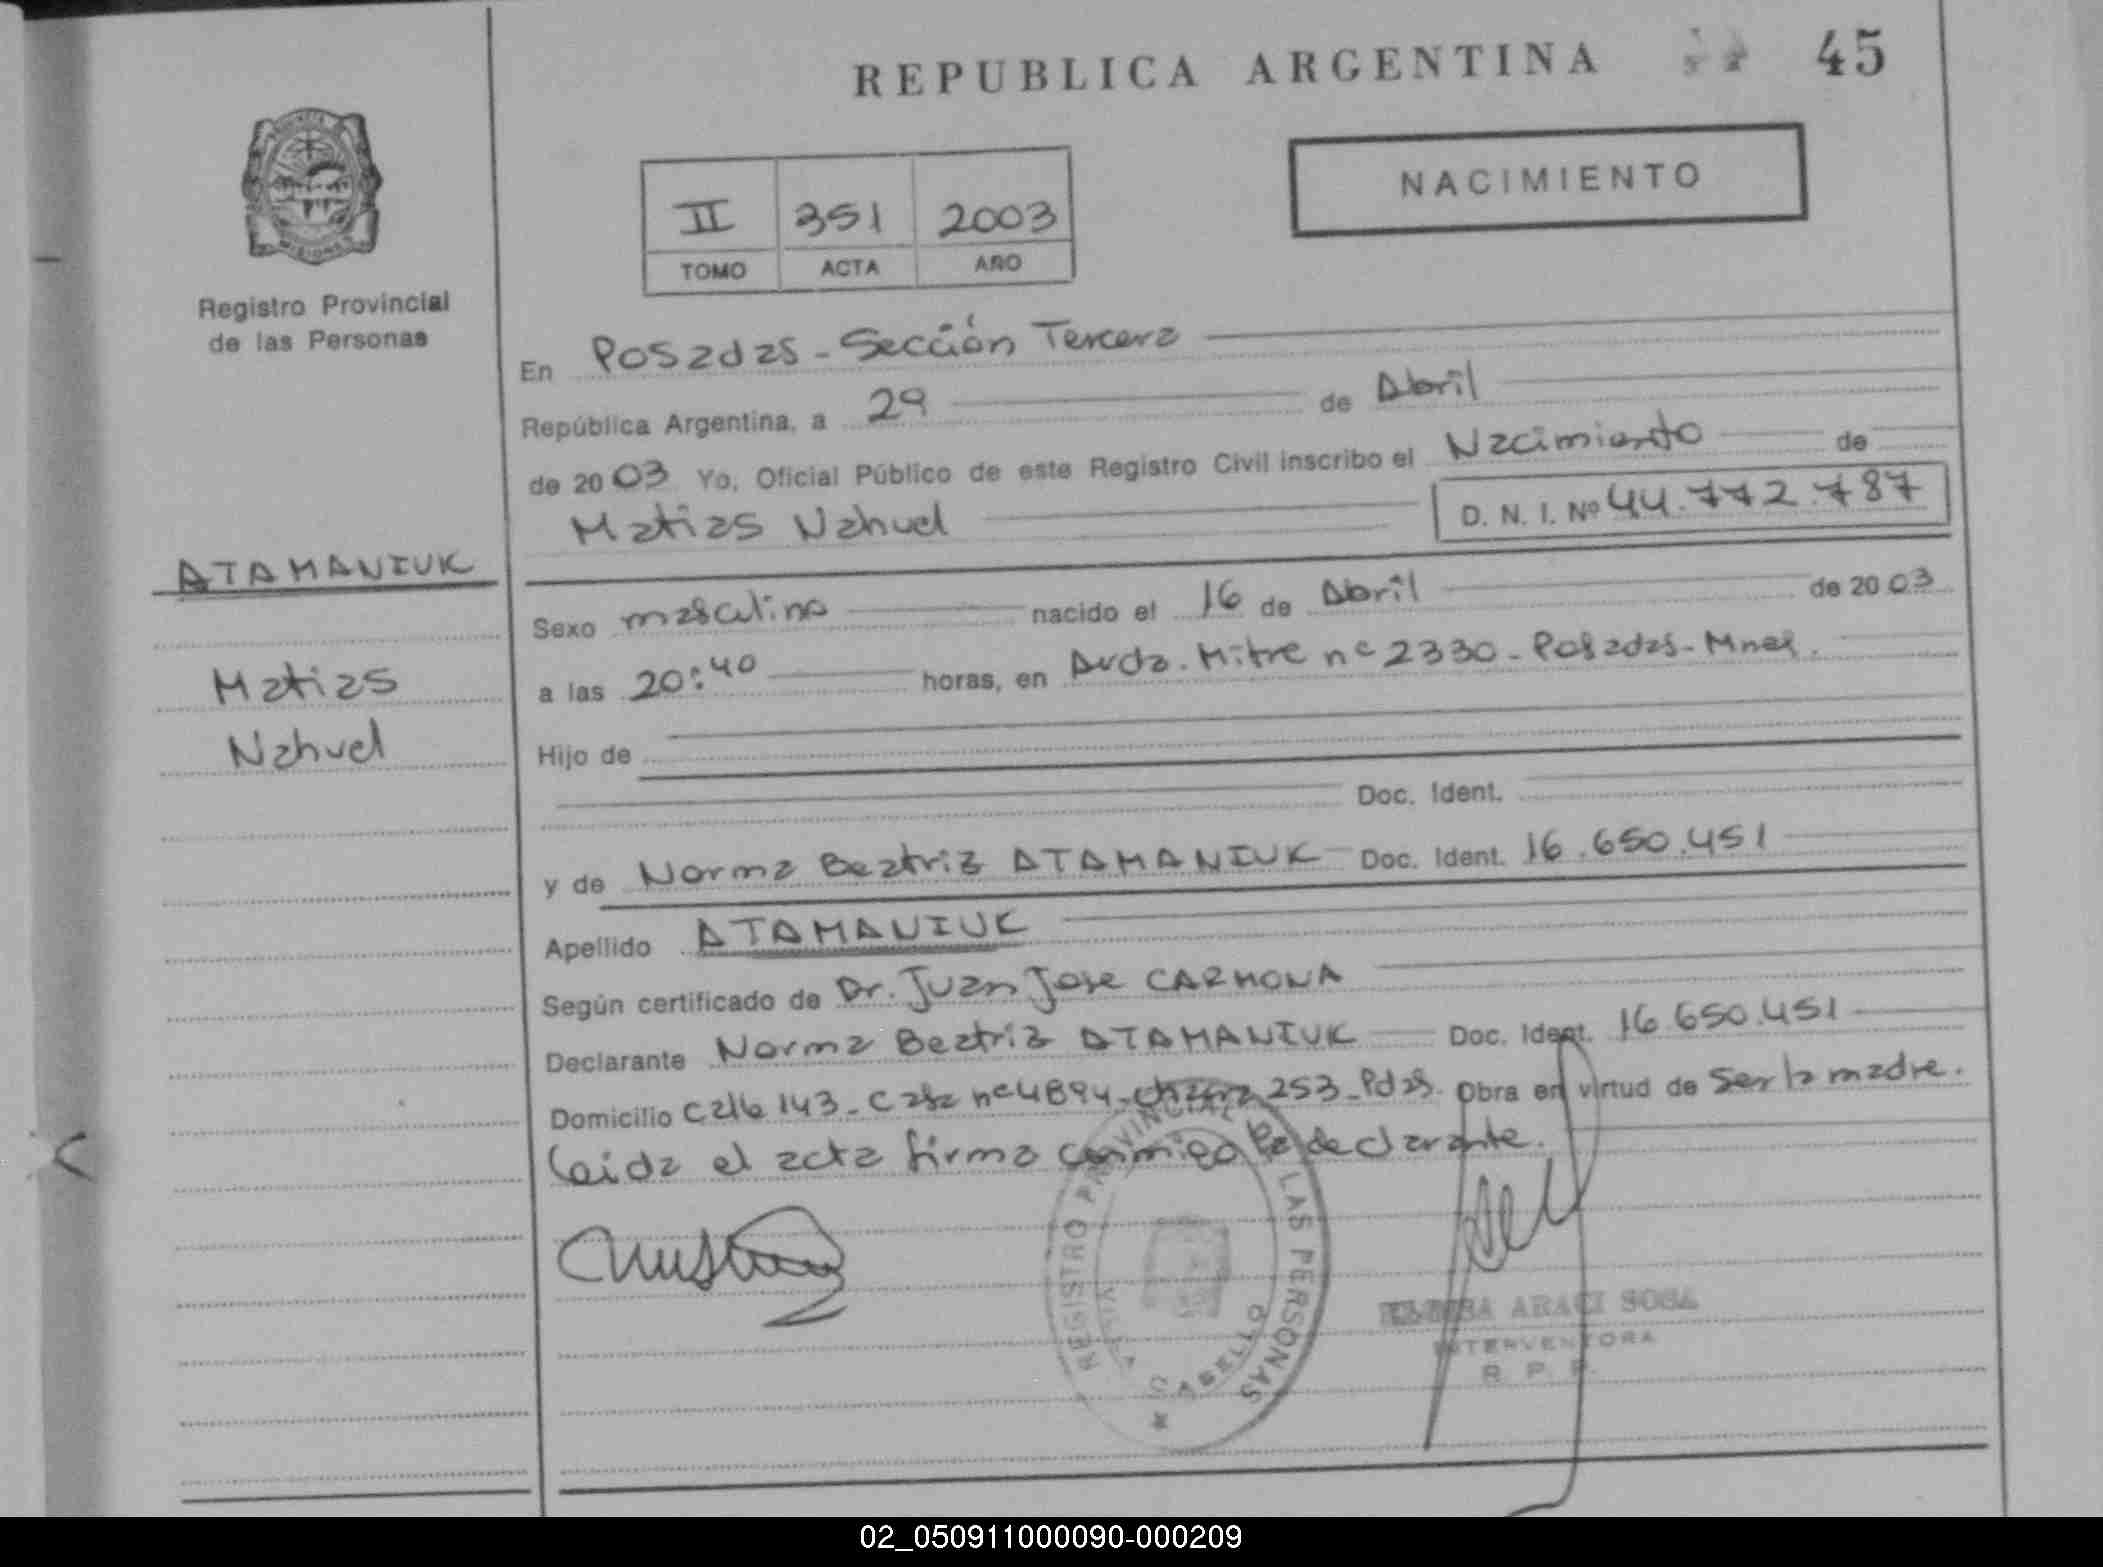 REPUBLICA ARGENTINA 45
NACIMIENTO
II 351 2003
TOMO ACTA AÑO
PROVINCIA DE
MISIONES
Registro Provincial
de las Personas
ATAMANIUK
Matias
Nahuel
En Posadas - Sección Tercera
República Argentina, a 29 de Abril
de 2003 Yo, Oficial Público de este Registro Civil inscribo el Nacimiento de
Matias Nahuel D. N. I. Nº 44.772.787
Sexo masculino nacido el 16 de Abril de 2003
a las 20:40 horas, en Avda. Mitre nº 2330 - Posadas - Mnes.
Hijo de
Doc. Ident.
y de Norma Beatriz ATAMANIUK Doc. Ident. 16.650.451
Apellido ATAMANIUK
Según certificado de Dr. Juan Jose CARMONA
Declarante Norma Beatriz ATAMANIUK Doc. Ident. 16.650.451
Domicilio Calle 143 - Casa nº 4894 - Chacra 253 - Pdas. Obra en virtud de ser la madre.
Leida el acta firma conmigo la declarante.
REGISTRO PROVINCIAL DE LAS PERSONAS
ARACI SOSA
INTERVENTORA
R. P. P.
02_050911000090-000209